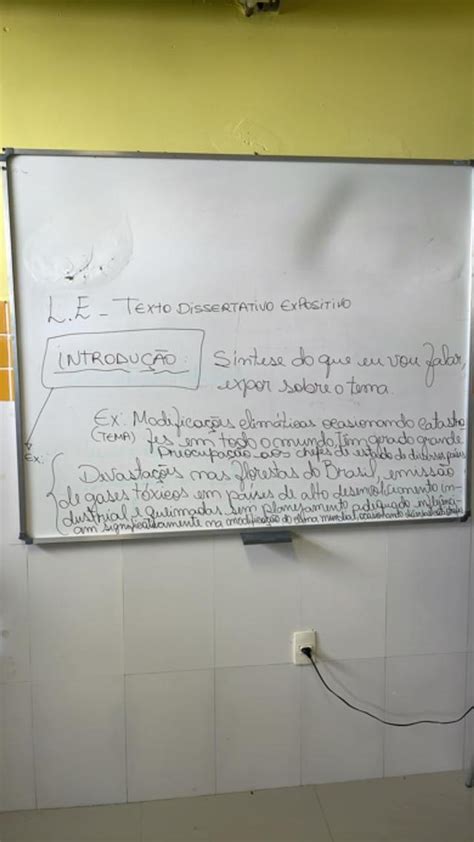 L.E - TEXTO DISSERTATIVO EXPOSITIVO
INTRODUÇÃO: Síntese do que eu vou falar,
expor sobre o tema.
Ex: Modificações climáticas ocasionando catástro
(TEMA) fes em todo o mundo, têm gerado grande
Ex: preocupação aos chefes de estado de diversos países
Devastações nas florestas do Brasil, emissão
de gases tóxicos em países de alto desenvolvimento in-
dustrial e queimadas sem planejamento adequado influenci-
am significativamente na modificação do clima mundial, ocasionando